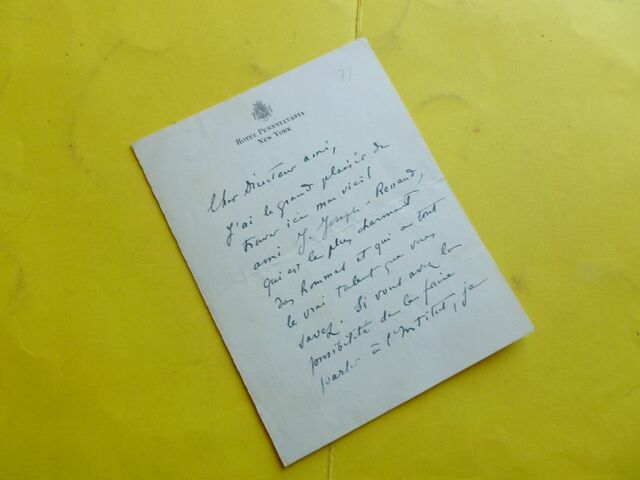 HOTEL PENNSYLVANIA
NEW YORK
Cher Directeur ami,
J'ai le grand plaisir de
trouver ici mon vieil
ami J. Joseph-Renaud,
qui est le plus charmant
des hommes et qui a tout
le vrai talent que vous
savez. Si vous avez la
possibilité de le faire
parler à l'Institut, je